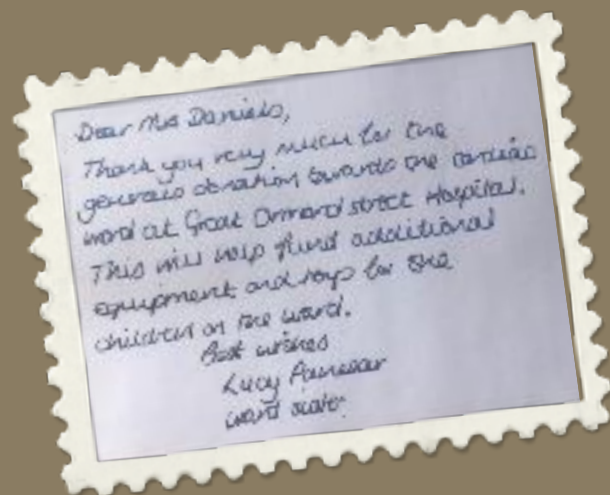 Dear Mrs Daniels,
Thank you very much for the
generous donation towards the cardiac
ward at Great Ormond street Hospital.
This will help fund additional
equipment and toys for the
children on the ward.
Best wishes
Lucy
ward sister